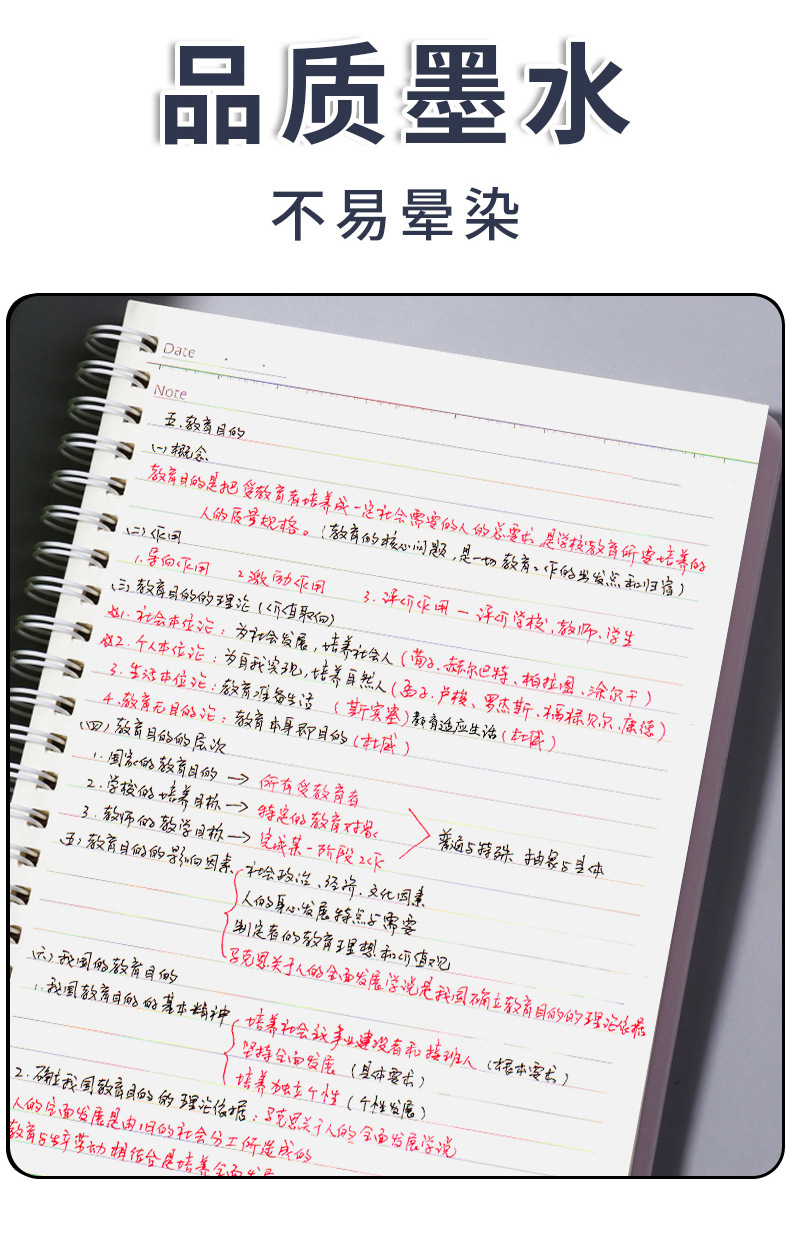 品质墨水
不易晕染
Date
Note
五.教育目的
(一)概念
教育目的是把受教育者培养成一定社会需要的人的总要求,是学校教育所要培养的
人的质量规格。(教育的核心问题,是一切教育工作的出发点和归宿)
(二)作用
1.导向作用 2.激励作用 3.评价作用—评价学校、教师、学生
(三)教育目的的理论(价值取向)
1.社会本位论:为社会发展,培养社会人(荀子、赫尔巴特、柏拉图、涂尔干)
2.个人本位论:为自我实现,培养自然人(孟子、卢梭、罗杰斯、福禄贝尔、康德)
3.生活本位论:教育准备生活(斯宾塞)教育适应生活(杜威)
4.教育无目的论:教育本身即目的(杜威)
(四)教育目的的层次
1.国家的教育目的→所有受教育者
2.学校的培养目标→特定的教育对象
3.教师的教学目标→完成某一阶段工作
普遍与特殊 抽象与具体
(五)教育目的的影响因素
社会政治、经济、文化因素
人的身心发展特点与需要
制定者的教育理想和价值观
马克思关于人的全面发展学说是我国确立教育目的的理论依据
(六)我国的教育目的
1.我国教育目的的基本精神
培养社会主义事业建设者和接班人(根本要求)
坚持全面发展(具体要求)
培养独立个性(个性发展)
2.确立我国教育目的的理论依据:马克思关于人的全面发展学说
人的全面发展是由旧的社会分工所造成的
教育与生产劳动相结合是培养全面发展